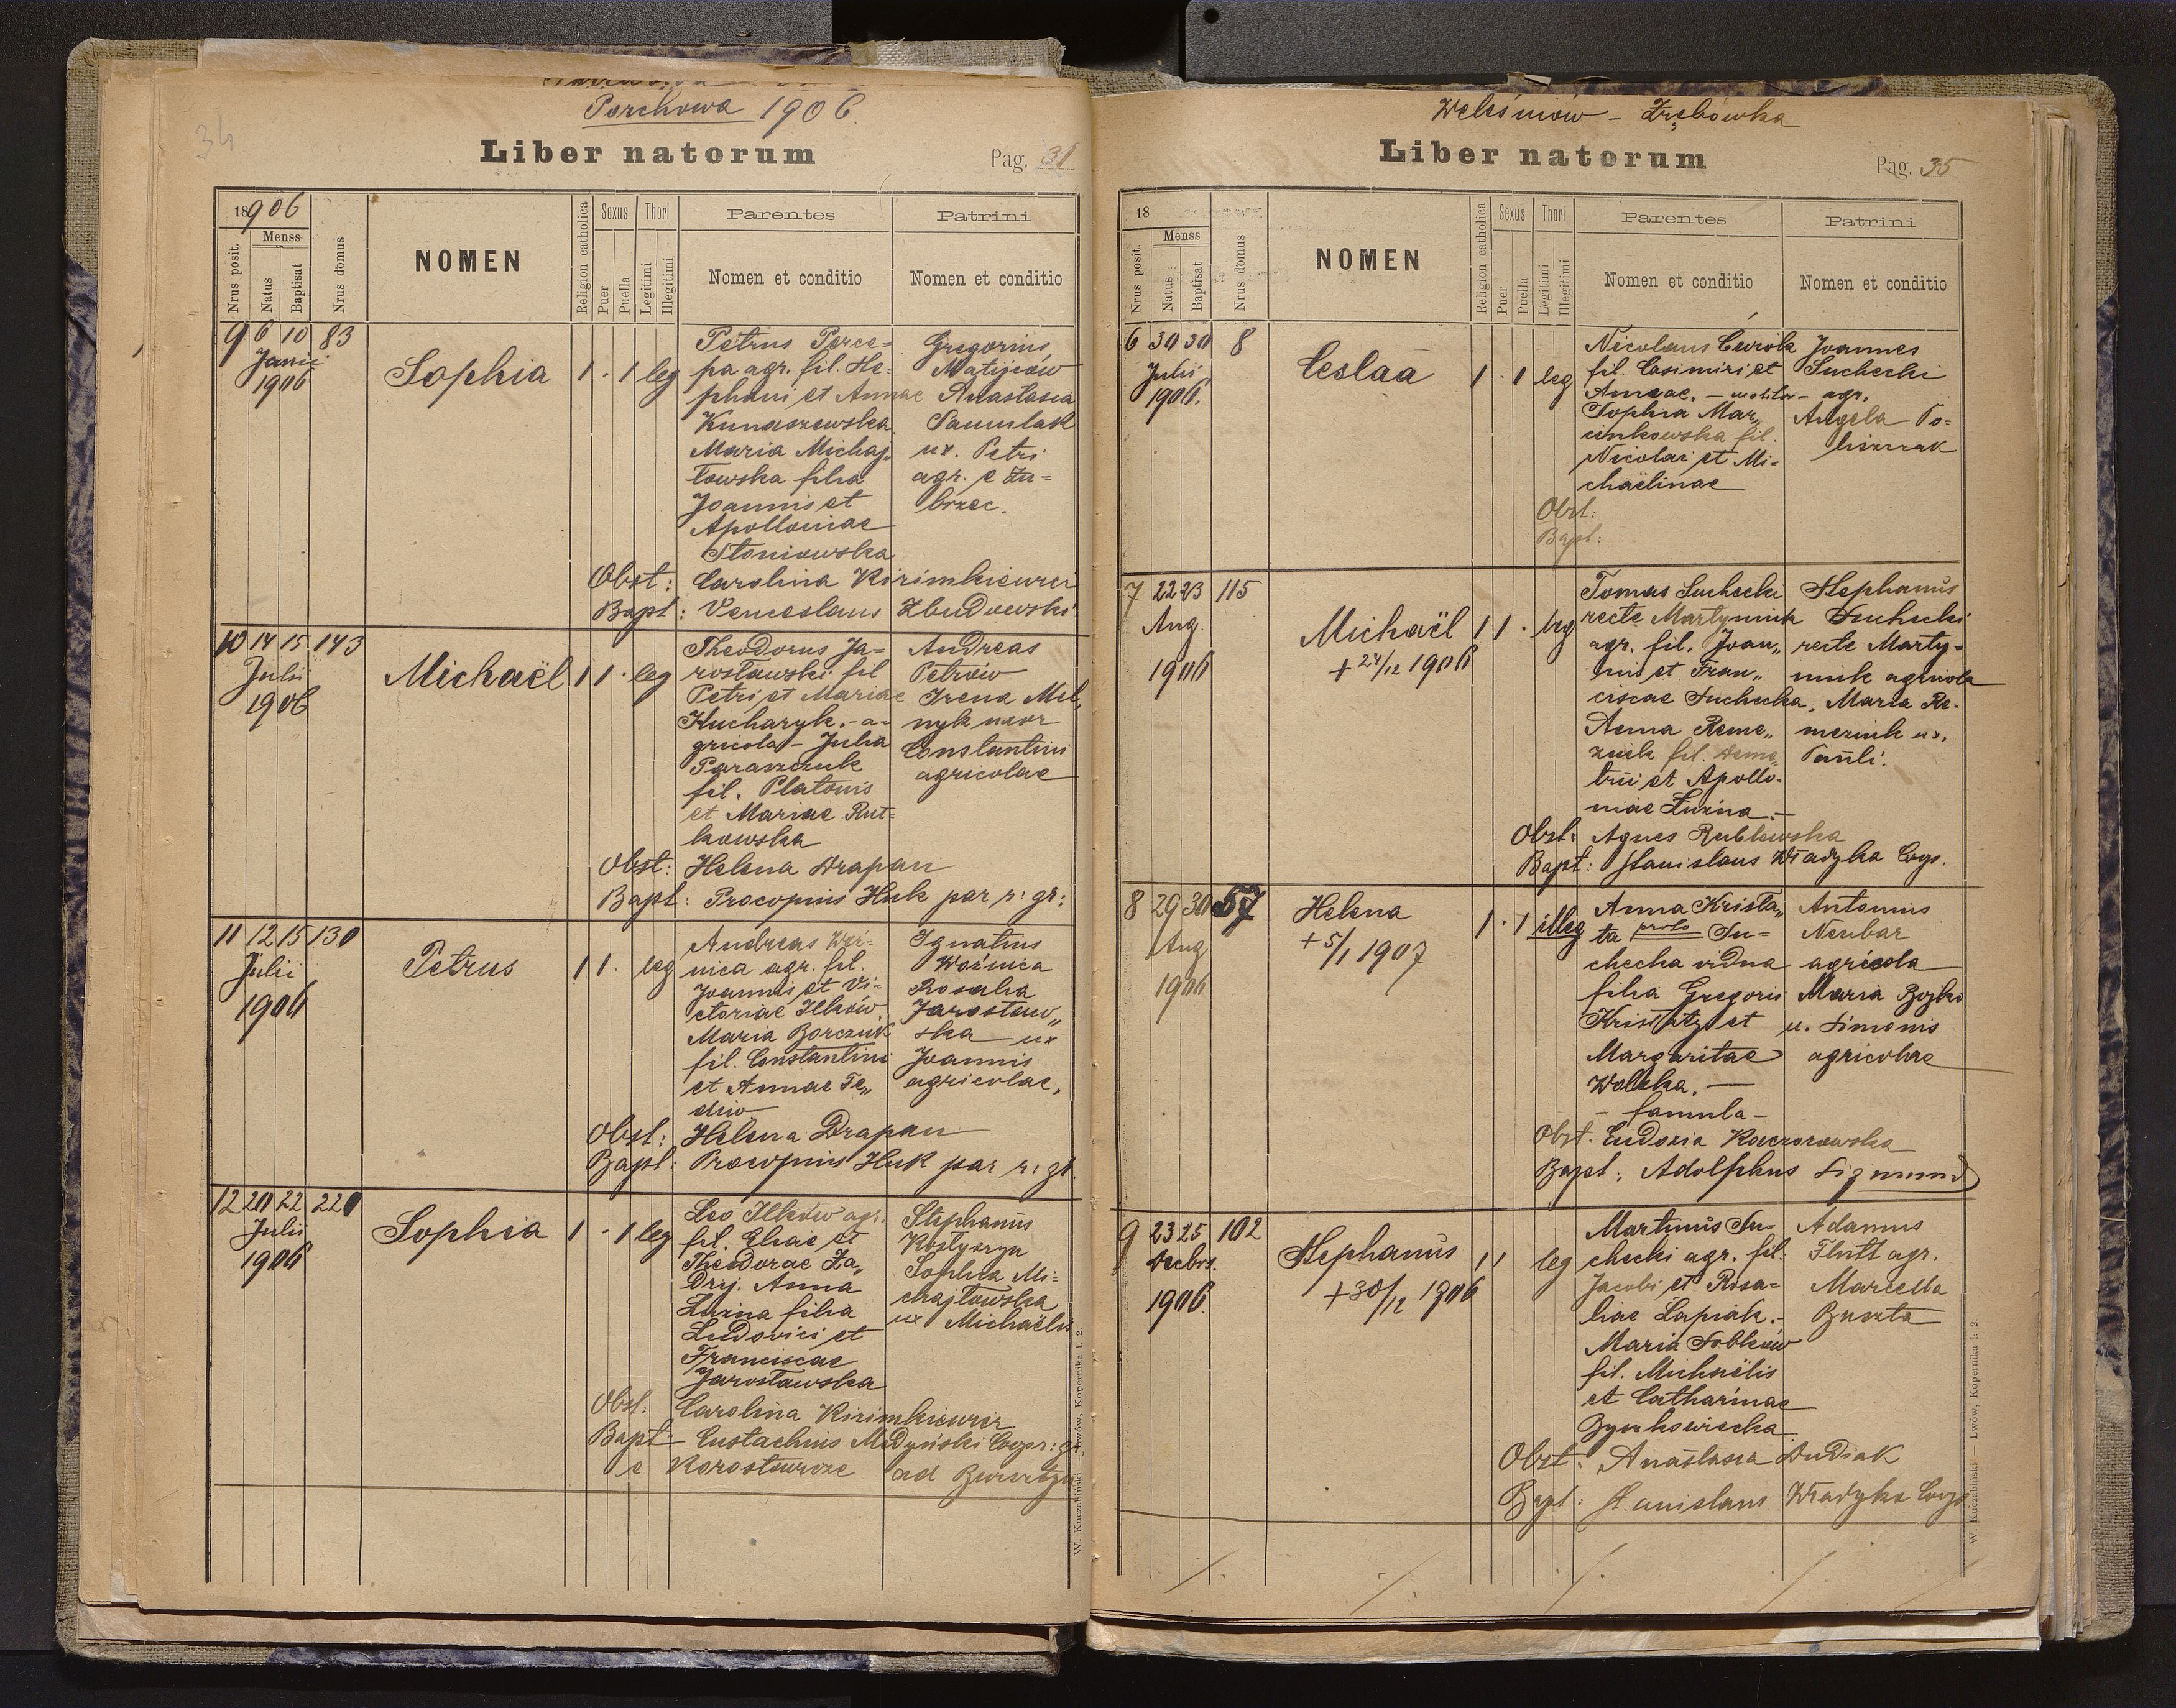 Porchowa 1906.
34
Liber natorum
Pag. 31
1906
Menss
Nrus posit.
Natus
Baptisat
Nrus domus
NOMEN
Religion catholica
Sexus
Puer
Puella
Thori
Legitimi
Illegitimi
Parentes
Nomen et conditio
Patrini
Nomen et conditio
9 6 10 83
Junii
1906
Sophia
1 · 1 leg
Petrus Porce=
pa agr. fil. Ste=
phani et Annae
Kunaszewska
Maria Michaj-
łowska filia
Joannis et
Apolloniae
Słoniowska
Gregorius
Matijców
Anastasia
Samulak
ux. Petri
agr. e Zu=
brzec.
Obst: Carolina Kirimkiewicz
Bapt: Venceslaus Zbudowski
10 14 15 143
Julii
1906
Michaël
1 1 · leg
Theodorus Ja=
rosławski fil
Petri et Mariae
Kucharyk. - a=
gricola - Julia
Paraszczuk
fil. Platonis
et Mariae Rut=
kowska
Andreas
Petrów
Irena Mel„
nyk uxor
Constantini
agricolae
Obst: Helena Drapan
Bapt: Procopius Huk par r: gr:
11 12 15 130
Julii
1906
Petrus
1 1 · leg
Andreas Woź=
nica agr. fil.
Joannis et Vi=
ctoriae Ilków.
Maria Borczuk
fil. Constantini
et Annae Fe„
diw
Ignatius
Woźnica
Rosalia
Jarosław„
ska ux
Joannis
agricolae.
Obst: Helena Drapan
Bapt: Procopius Huk par r: gr.
12 20 22 220
Julii
1906
Sophia
1 · 1 leg
Leo Ilków agr.
fil. Eliae et
Theodorae Za„
drij. Anna
Luzna filia
Ludovici et
Franciscae
Jarosławska
Stephanus
Kostyszyn
Sophia Mi=
chajłowska
ux Michaëlis
Obst: Carolina Kirimkiewicz
Bapt: Eustachius Madyński Coop r: gr
e Korostowice ad
W. Kuczabiński — Lwów, Kopernika l. 2.
Weleśniów - Zrębówka
Liber natorum
Pag. 35
18
Menss
Nrus posit.
Natus
Baptisat
Nrus domus
NOMEN
Religion catholica
Sexus
Puer
Puella
Thori
Legitimi
Illegitimi
Parentes
Nomen et conditio
Patrini
Nomen et conditio
6 30 30 8
Julii
1906.
Ceslaa
1 · 1 leg
Nicolaus
fil. Casimiri et
Annae. - molitor -
Sophia Mar„
cinkowska fil.
Nicolai et Mi=
chaëlinae
Joannes
Suchecki
agr.
Angela Po=
Obst:
Bapt:
7 22 23 115
Aug.
1906
Michaël
+ 24/12 1906
1 1 · leg
Tomas Suchecki
recte Martynnik
agr. fil. Joan„
nis et Fran„
ciscae Suchecka,
Anna Reme„
zuik fil. Deme„
trii et Apollo-
niae Luzna. -
Stephanus
Suchecki
recte Marty-
nnik agricola
Maria Re-
meznik ux.
Pauli.
Obst: Agnes Rubłowska
Bapt: Stanislaus Władyka Coop.
8 29 30 57
Aug
1906
Helena
+ 5/1 1907
1 · 1 illeg
Anna Krista„
ta proto Su=
checka vidua
filia Gregorii
Kristaty et
Margaritae
Wolska. -
- famula -
Antonius
Neubar
agricola
Maria Bojko
u. Simonis
agricolae
Obst. Eudoxia Kaczorowska
Bapt: Adolphus Sigmund
9 23 25 102
Decbris.
1906.
Stephanus
+ 30/12 1906
1 1 leg
Martinus Su-
checki agr. fil.
Jacobi et Rosa=
liae Lapiak. -
Maria Sobków
fil. Michaëlis
et Catharinae
Adamus
Flutt agr.
Marcella
Buszta
Obst: Anastasia Dudiak
Bapt: Stanislaus Władyka Coop
W. Kuczabiński — Lwów, Kopernika l. 2.